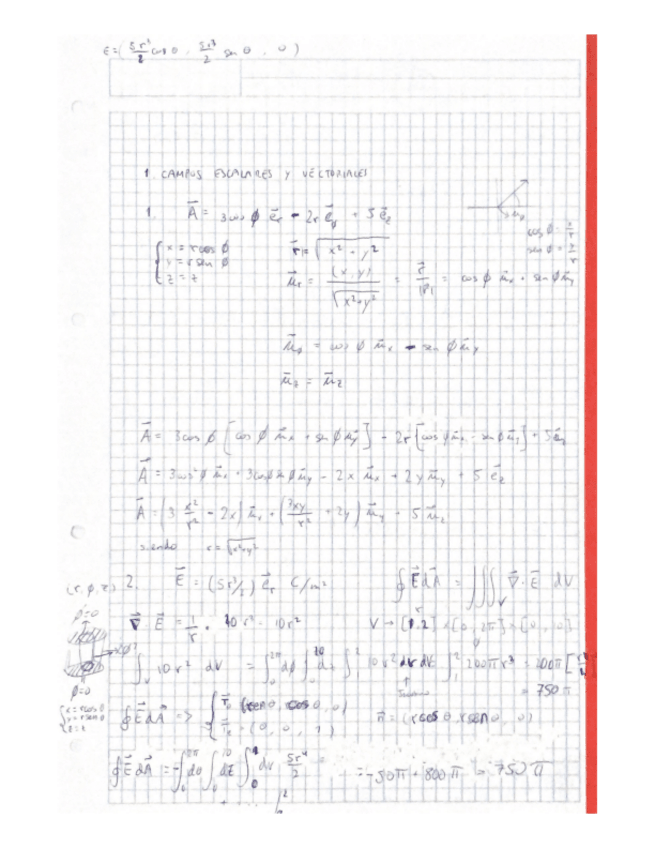 E = ( 5r³/2 cos θ , 5r³/2 sen θ , 0 )
1. CAMPOS ESCALARES Y VECTORIALES
1. A⃗ = 3cos ϕ e⃗r - 2r e⃗ϕ + 5 e⃗z
cos ϕ = x/r
sen ϕ = y/r
{ x = r cos ϕ
y = r sen ϕ
z = z
r = √(x² + y²)
u⃗r = (x, y)/√(x²+y²) = r⃗/|r⃗| = cos ϕ u⃗x + sen ϕ u⃗y
u⃗ϕ = cos ϕ u⃗x - sen ϕ u⃗y
u⃗z = u⃗z
A⃗ = 3cos ϕ [cos ϕ u⃗x + sen ϕ u⃗y] - 2r [cos ϕ u⃗x - sen ϕ u⃗y] + 5 e⃗z
A⃗ = 3cos² ϕ u⃗x + 3cos ϕ sen ϕ u⃗y - 2x u⃗x + 2y u⃗y + 5 e⃗z
A⃗ = (3 x²/r² - 2x) u⃗x + (3xy/r² + 2y) u⃗y + 5 u⃗z
siendo r = √(x²+y²)
(r, ϕ, z) 2. E⃗ = (5r³/2) e⃗r C/m² ∮ E⃗ dA⃗ = ∭v ∇⃗ · E⃗ dV
∇⃗ · E⃗ = 1/r · 10 r³ = 10r² V → [1, 2] × [0, 2π] × [0, 10]
ϕ=0
∫v 10 r² dV = ∫₀^2π dϕ ∫₀^10 dz ∫₁² 10 r² dr ∫₁² 200π r³ = 200π [
= 750 π
ϕ=0
{ x = r cos θ
y = r sen θ
z = z
∮ E⃗ dA⃗ => n⃗ = (r cos θ, r sen θ, 0)
(0, 0, 1)
∮ E⃗ dA⃗ = - ∫₀^2π dθ ∫₀^10 dz 5r⁴/2
= -50π + 800 π = 750 π